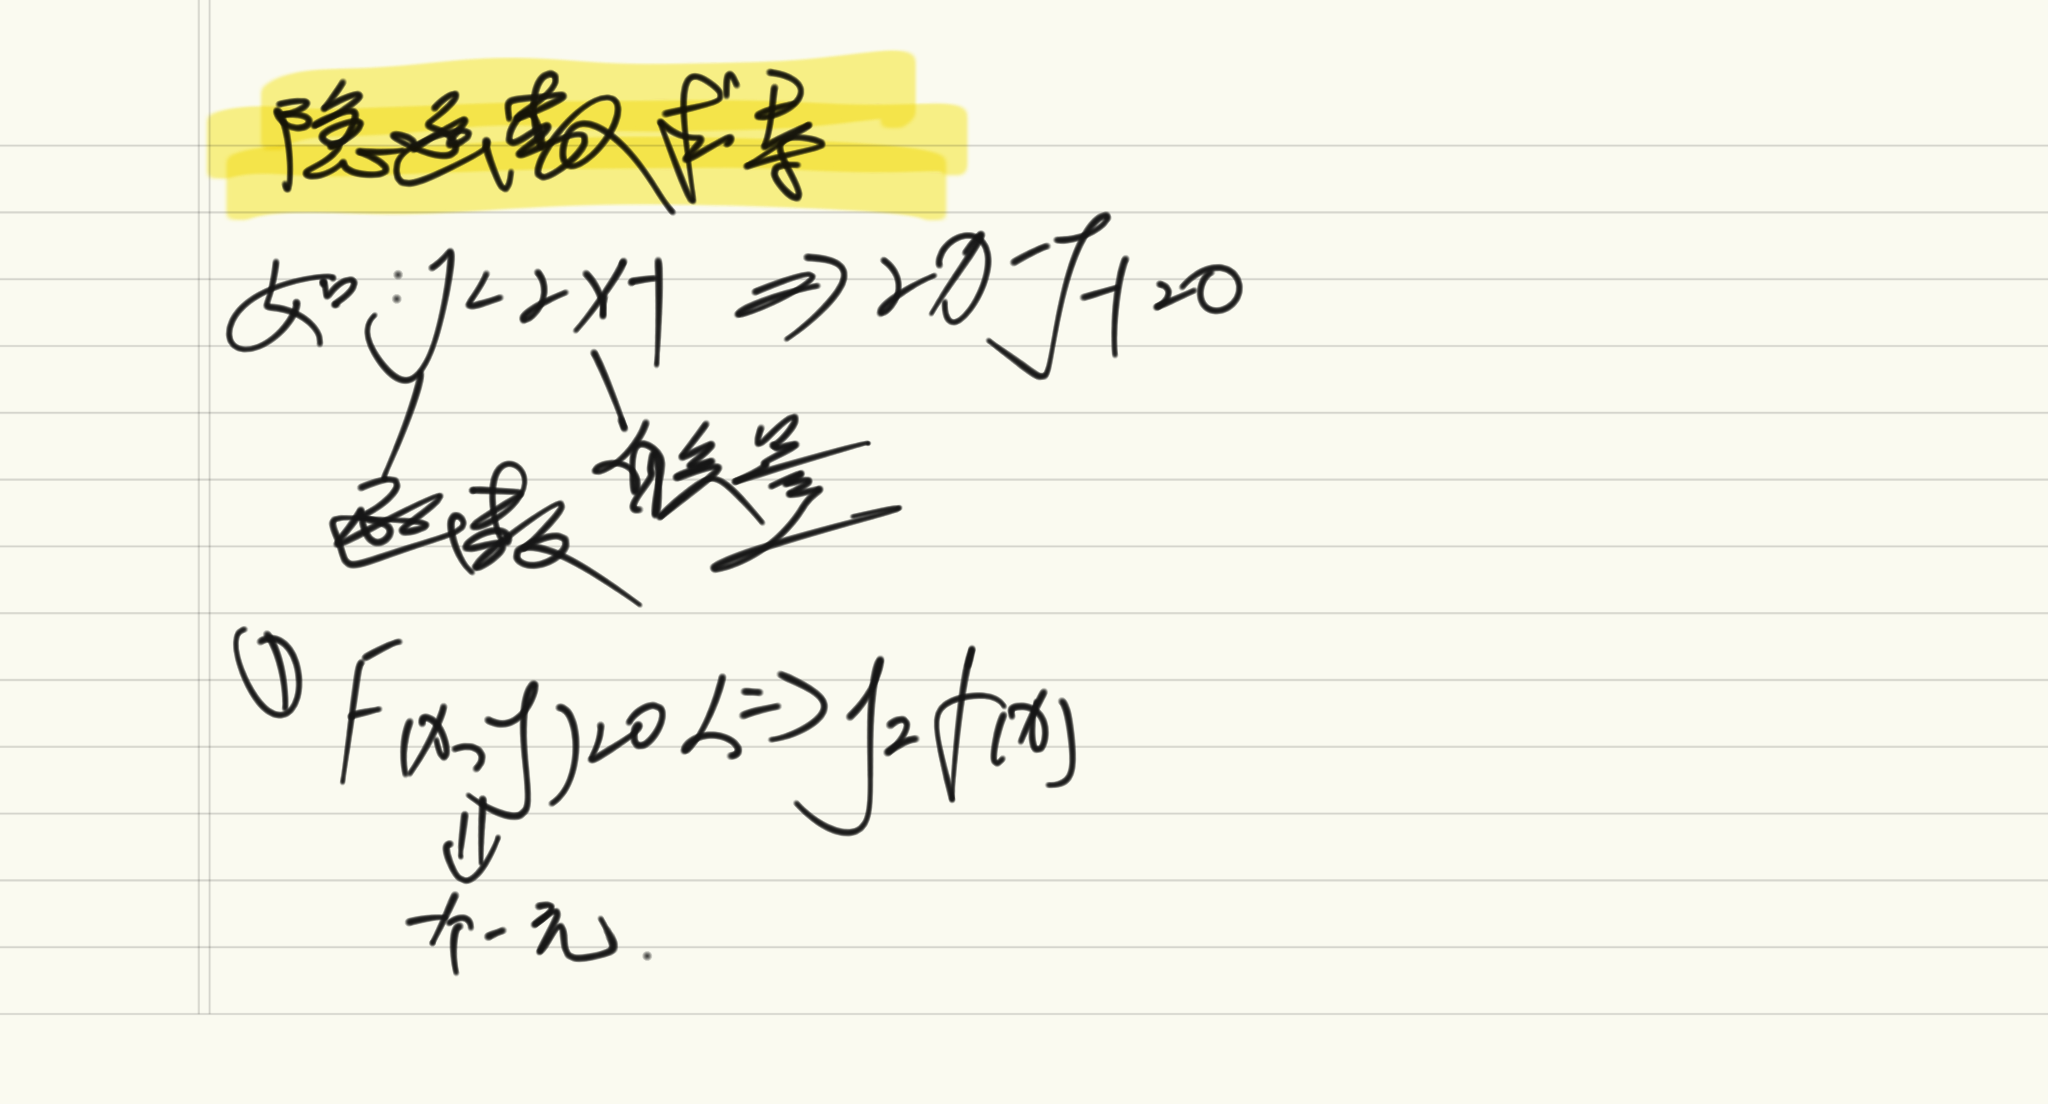 隐函数求导
如:y=2x+1 ⇒ 2x-y+1=0
函数 自变量
① F(x,y)=0 <=> y=f(x)
⇓
不一元.